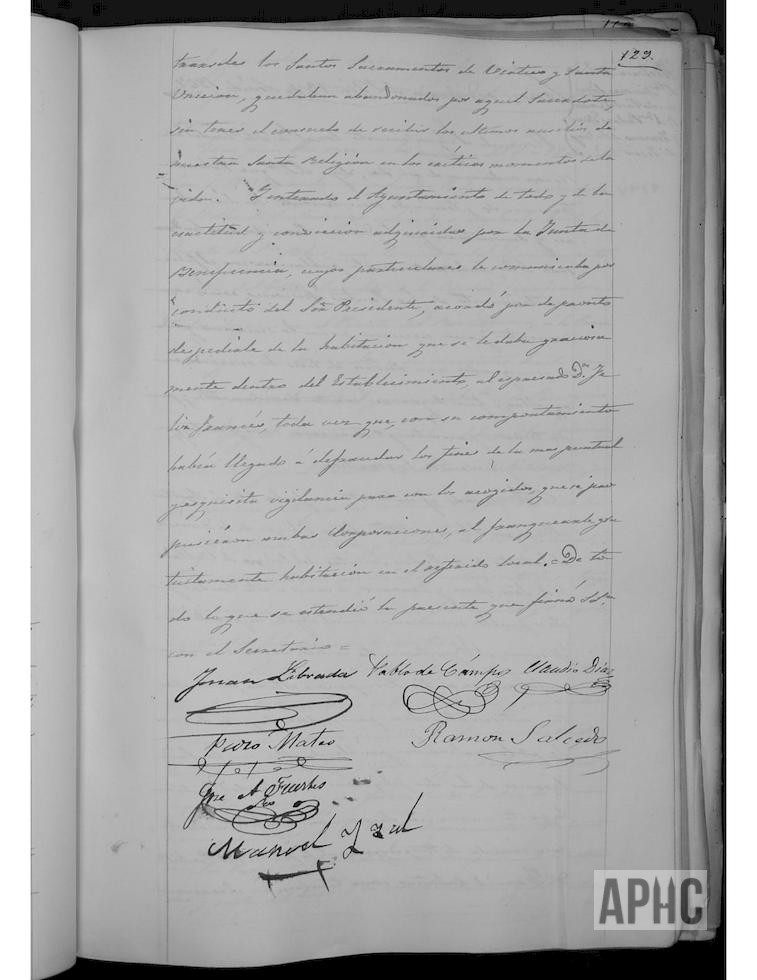 123.
trandoles los Santos Sacramentos de Viatico y Santa
Uncion, quedaban abandonados por aquel Sacerdote,
sin tener el consuelo de recibir los ultimos auxilios de
nuestra Santa Religion en los criticos momentos de la
vida. Y enterado el Ayuntamiento de todo y de la
exactitud y conviccion adquiridas por la Junta de
Beneficencia, cuyos particulares le comunicaba por
conducto del Sor. Presidente, acordó por de pronto
despedirle de la habitacion que se le daba graciosa
mente dentro del Establecimiento, al espresado Dn. Fe
lix Francés, toda vez que, con su comportamiento
habia llegado á defraudar los fines de la mas puntual
y esquisita vigilancia para con los acogidos, que se pro
pusieron ambas Corporaciones, al franquearle gra
tuitamente habitacion en el referido local. = De to
do lo que se estendió la presente que firmó SS.a
con el Secretario =
Juan Librada Pablo de Campos Claudio Diaz
Pedro Mateo Ramon Salcedo
Jose A Fuertes
Manuel Yzal
APHC